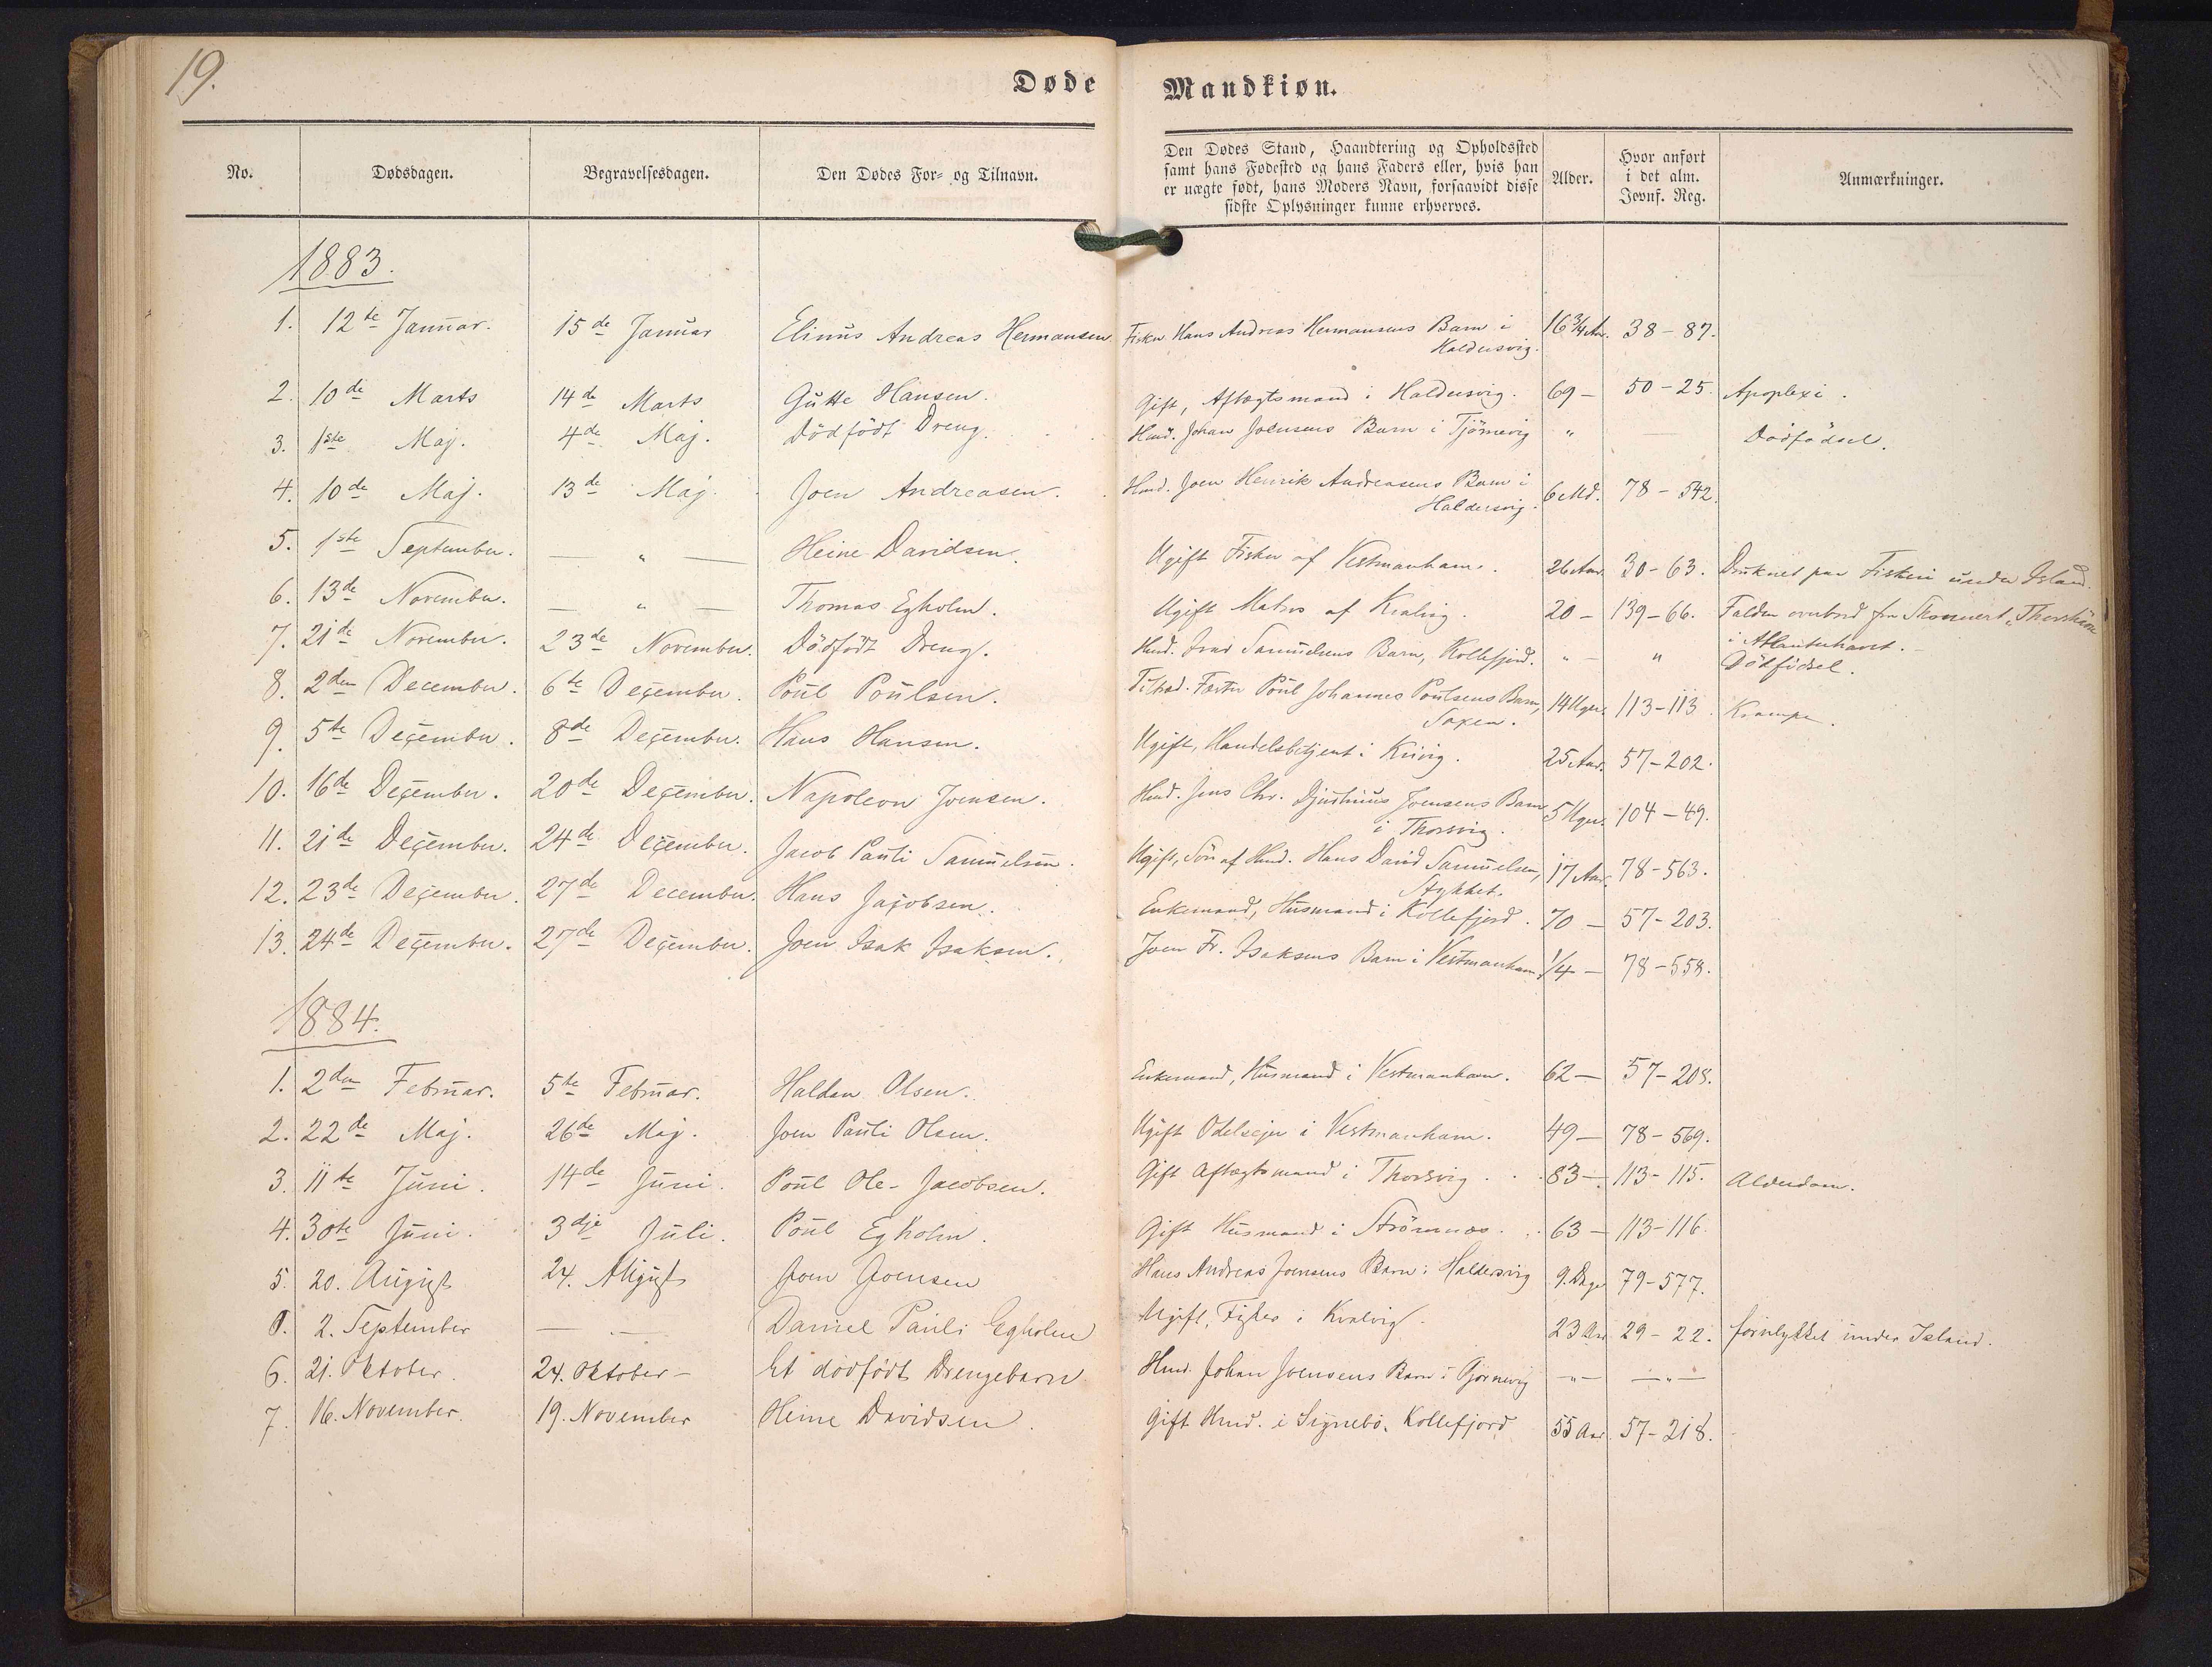 19.
Døde Mandkiøn.
No. Dødsdagen. Begravelsesdagen. Den Dødes For- og Tilnavn. Den Dødes Stand, Haandtering og Opholdssted Alder. Hvor anført Anmærkninger.
samt hans Fødested og hans Faders eller, hvis han i det alm.
er uægte født, hans Moders Navn, forsaavidt disse Jevnf. Reg.
sidste Oplysninger kunne erhverves.
1883.
1. 12te Januar. 15de Januar Elinus Andreas Hermansen Fisker Hans Andreas Hermansens Barn i 16¾ Aar. 38-87.
Haldersvig.
2. 10de Marts 14de Marts Gutte Hansen. Gift, Aftægtsmand i Haldersvig. 69 - 50-25. Apoplexi.
3. 1ste Maj. 4de Maj. Dödfödt Dreng. Husd. Johan Joensens Barn i Tjörnevig " — Dödfödsel.
4. 10de Maj. 13de Maj. Joen Andreasen. Husd. Joen Henrik Andreasens Barn i 6 Md. 78-542.
Haldersvig.
5. 1ste September. — " — Heine Davidsen. Ugift Fisker af Vestmanhavn. 26 Aar. 30-63. Druknet paa Fiskeri under Island.
6. 13de November. — " — Thomas Egholm. Ugift Matros af Kvalvig. 20 - 139-66. Falden overbord fra Skonnert "Thorshavn
i Atlanterhavet.
7. 21de November. 23de November. Dödfödt Dreng. Husd. Samuelsens Barn, Kollefjord. " - " Dödfödsel.
8. 2den December. 6te December. Poul Poulsen. Fæster Poul Johannes Poulsens Barn, 14 Uger. 113-113. Krampe.
Saxen.
9. 5te December. 8de December. Hans Hansen. Ugift, Handelsbetjent i Kvivig. 25 Aar. 57-202.
10. 16de December. 20de December. Napoleon Joensen. Husd. Jens Chr. Djurhuus Joensens Barn 5 Uger. 104-49.
i Thorsvig.
11. 21de December. 24de December. Jacob Pauli Samuelsen. Ugift, Sön af Husd. Hans David Samuelsen, 17 Aar. 78-563.
Stykket.
12. 23de December. 27de December. Hans Jacobsen. Enkemand, Husmand i Kollefjord. 70 - 57-203.
13. 24de December. 27de December. Joen Isak Isaksen. Joen Fr. Isaksens Barn i Vestmanhavn. 1/4 - 78-558.
1884.
1. 2den Februar. 5te Februar. Haldan Olsen. Enkemand, Husmand i Vestmanhavn. 62 — 57-208.
2. 22de Maj. 26de Maj. Joen Pauli Olsen. Ugift Odelsejer i Vestmanhavn. 49 — 78-569.
3. 11te Juni. 14de Juni. Poul Ole-Jacobsen. Gift Aftægtsmand i Thorsvig. 83 — 113-115. Alderdom.
4. 30te Juni. 3dje Juli. Poul Egholm. Gift Husmand i Strömnæs. 63 — 113-116.
5. 20. August 24. August Joen Joensen Hans Andreas Joensens Barn i Haldersvig 9. Dage 79-577.
6. 2. September — — Daniel Pauli Egholm Ugift, Fisker i Kvalvig. 23 Aar 29-22. forulykket under Island.
6. 21. Oktober. 24. Oktober - Et dödfödt Drengebarn Husd. Johan Joensens Barn i Tjörnevig — " — — " —
7. 16. November. 19. November Heine Davidsen. Gift Husd. i Signebö, Kollefjord 55 Aar 57-218.